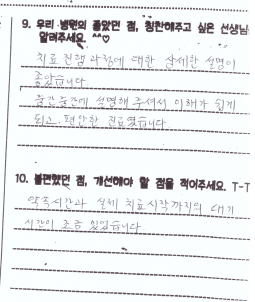 9. 우리 병원의 좋았던 점, 칭찬해주고 싶은 선생님
알려주세요. ^^♡
치료 진행 과정에 대한 상세한 설명이
좋았습니다.
중간중간에 설명해 주셔서 이해가 쉽게
되고 편안한 진료였습니다.
10. 불편했던 점, 개선해야 할 점을 적어주세요. T-T
약속시간과 실제 치료시작까지의 대기
시간이 조금 있었습니다